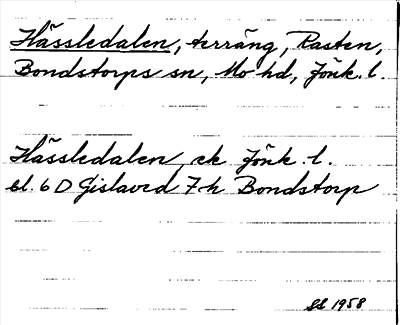 Hässledalen, terräng, Rasten,
Bondstorps sn, Mo hd, Jönk. l.
Hässledalen, ek Jönk. l.
bl. 6 D Gislaved 7 h Bondstorp
SS 1958